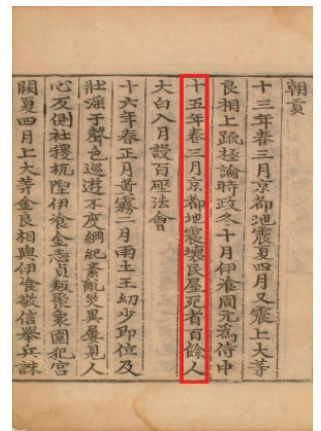 朝貢
十三年春三月京都地震夏四月又震上大等
良相上䟽極論時政冬十月伊飡周元爲侍中
十五年春三月京都地震壞民屋死者百餘人
大白入月設百座法會
十六年春正月黃霧二月雨土王幼少即位及
壯淫于聲色巡遊不度綱紀紊亂災異屢見人
心反側社稷杌隉伊飡金志貞叛聚衆圍犯宮
闕夏四月上大等金良相與伊飡敬信舉兵誅